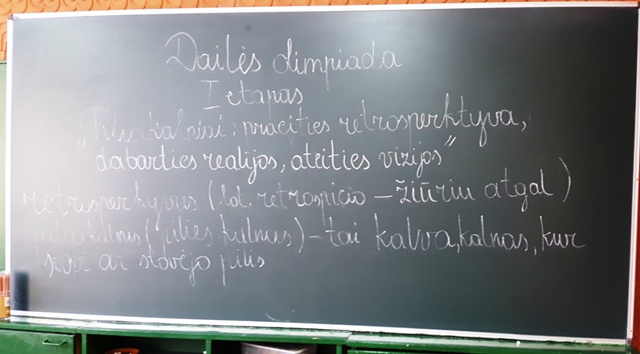 Dailės olimpiada
I etapas
"Piliakalniai: praeities retrospektyva,
dabarties realijos, ateities vizijos"
retrospektyvus (lot. retrospicio – žiūriu atgal)
piliakalnis (pilies kalnas) – tai kalva, kalnas, kur
stovi ar stovėjo pilis